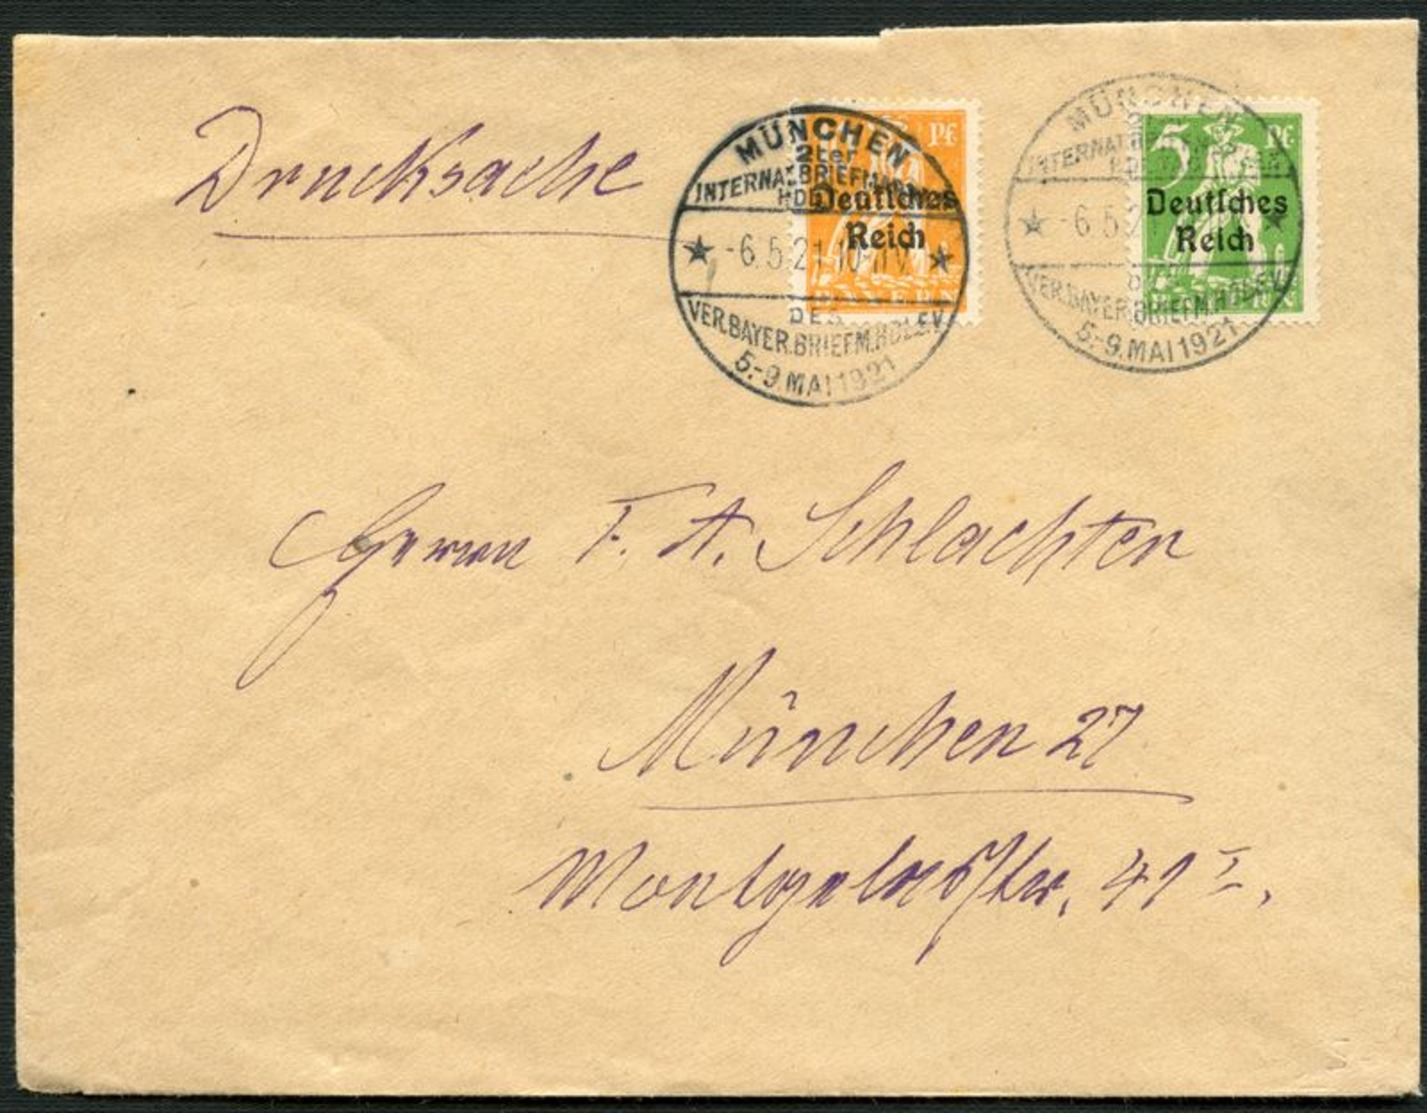 Drucksache
MÜNCHEN
2ter
INTERNAT. BRIEFM.
HDL
★ -6.5.21 10-11V. ★
DES
VER.BAYER.BRIEFM.HDL.E.V.
5.-9.MAI 1921
Pf
Deutsches
Reich
BAYERN
MÜNCHEN
INTERNAT.
★ -6.5.21 ★
VER.BAYER.BRIEFM.HDL.E.V.
5.-9.MAI 1921
5 Pf
Deutsches
Reich
Herrn F. A. Schlachter
München 27
Montgelasstr. 41 I.